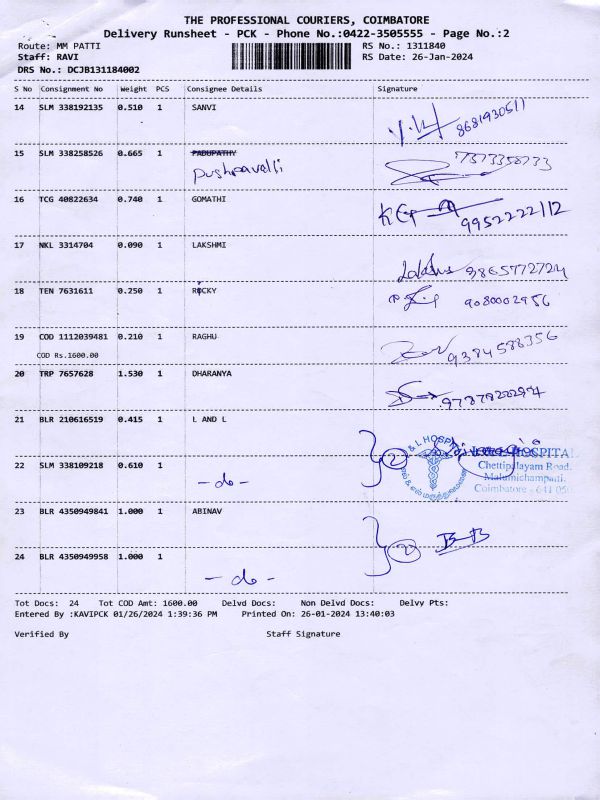 THE PROFESSIONAL COURIERS, COIMBATORE
Delivery Runsheet - PCK - Phone No.:0422-3505555 - Page No.:2
Route: MM PATTI RS No.: 1311840
Staff: RAVI RS Date: 26-Jan-2024
DRS No.: DCJB131184002
S No Consignment No Weight PCS Consignee Details Signature
14 SLM 338192135 0.510 1 SANVI
8681930511
15 SLM 338258526 0.665 1 PADUPATHY
16 TCG 40822634 0.740 1 GOMATHI
9952222112
17 NKL 3314704 0.090 1 LAKSHMI
9865772724
18 TEN 7631611 0.250 1 ROCKY
9080002956
19 COD 1112039481 0.210 1 RAGHU
9384588356
COD Rs.1600.00
20 TRP 7657628 1.530 1 DHARANYA
21 BLR 210616519 0.415 1 L AND L
2
& L HOSPITAL
Chettipalayam Road,
Malumichampatti,
Coimbatore - 641 050
22 SLM 338109218 0.610 1
- do -
23 BLR 4350949841 1.000 1 ABINAV
2
24 BLR 4350949958 1.000 1
- do -
Tot Docs: 24 Tot COD Amt: 1600.00 Delvd Docs: Non Delvd Docs: Delvy Pts:
Entered By :KAVIPCK 01/26/2024 1:39:36 PM Printed On: 26-01-2024 13:40:03
Verified By Staff Signature